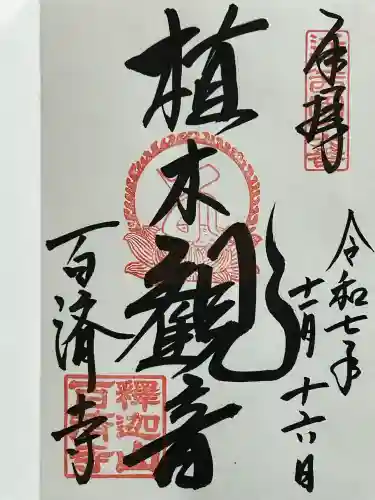 奉拝
令和七年
十二月十六日
植木観音
百済寺
釋迦山
百済寺